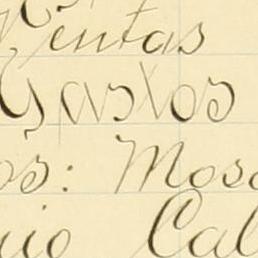 Rentas
Gastos
os: Mosc
uio Cal